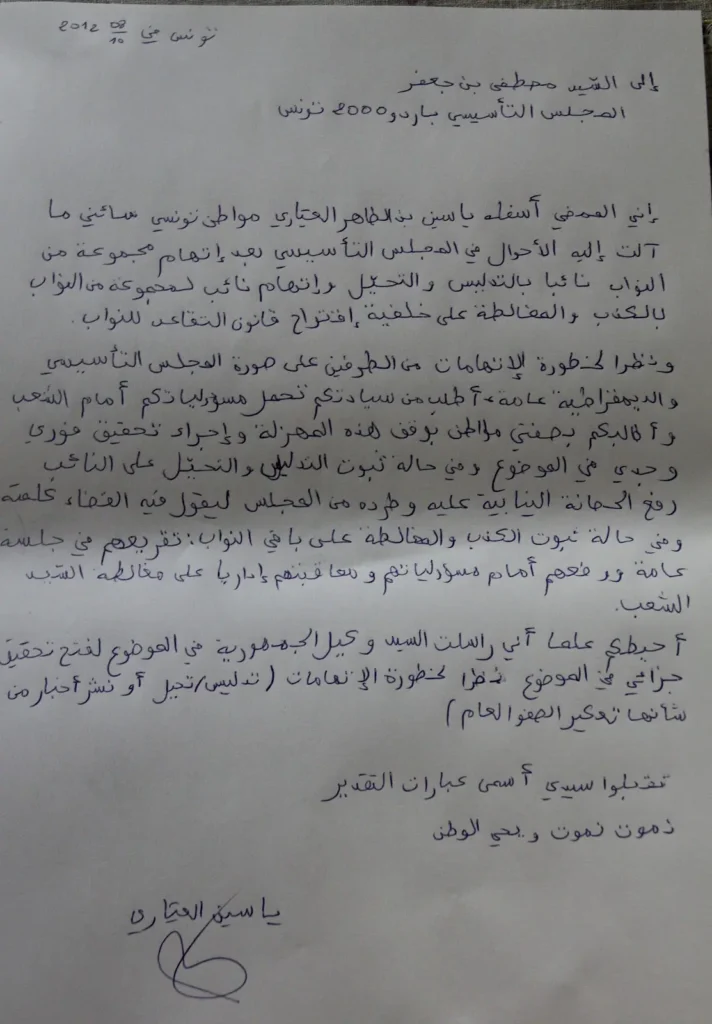 تونس في 08/10 2012
إلى السيد مصطفى بن جعفر
المجلس التأسيسي باردو 2000 تونس
إني الممضي أسفله ياسين بن الطاهر العياري مواطن تونسي سائني ما
آلت إليه الأحوال في المجلس التأسيسي بعد إتهام مجموعة من
النواب نائبا بالتدليس والتحيّل وإتهام نائب لمجموعة من النواب
بالكذب والمغالطة على خلفية إقتراح قانون التقاعد للنواب.
ونظرا لخطورة الإتهامات من الطرفين على صورة المجلس التأسيسي
والديمقراطية عامة، أطلب من سيادتكم تحمل مسؤولياتكم أمام الشعب
وأطالبكم بصفتي مواطن بوقف هذه المهزلة وإجراء تحقيق فوري
وجدي في الموضوع وفي حالة ثبوت التدليس والتحيّل على النائب
رفع الحصانة النيابية عليه وطرده من المجلس ليقول فيه القضاء كلمته
وفي حالة ثبوت الكذب والمغالطة على باقي النواب: تقريعهم في جلسة
عامة ووضعهم أمام مسؤولياتهم ومعاقبتهم إداريا على مغالطة السيد
الشعب.
أحيطكم علما أني راسلت السيد وكيل الجمهورية في الموضوع لفتح تحقيق
جزائي في الموضوع نظرا لخطورة الإتهامات (تدليس/تحيل أو نشر أخبار من
شأنها تعكير الصفو العام)
تقبلوا سيدي أسمى عبارات التقدير
نموت نموت ويحي الوطن
ياسين العياري